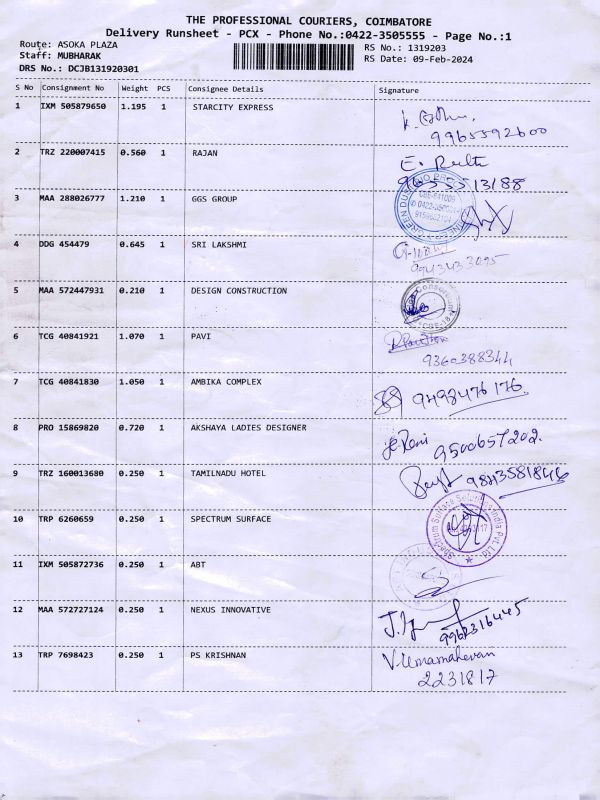 THE PROFESSIONAL COURIERS, COIMBATORE
Delivery Runsheet - PCX - Phone No.:0422-3505555 - Page No.:1
Route: ASOKA PLAZA
RS No.: 1319203
Staff: MUBHARAK
RS Date: 09-Feb-2024
DRS No.: DCJB131920301
S No Consignment No Weight PCS Consignee Details Signature
1 IXM 505879650 1.195 1 STARCITY EXPRESS
9965592600
2 TRZ 220007415 0.560 1 RAJAN
9655513188
3 MAA 288026777 1.210 1 GGS GROUP
4 DDG 454479 0.645 1 SRI LAKSHMI
9943433095
5 MAA 572447931 0.210 1 DESIGN CONSTRUCTION
6 TCG 40841921 1.070 1 PAVI
9360388344
7 TCG 40841830 1.050 1 AMBIKA COMPLEX
9498476176
8 PRO 15869820 0.720 1 AKSHAYA LADIES DESIGNER
9500657202.
9 TRZ 160013680 0.250 1 TAMILNADU HOTEL
9843581846
10 TRP 6260659 0.250 1 SPECTRUM SURFACE
Spectrum Surface Solutions India Pvt. Ltd.
11 IXM 505872736 0.250 1 ABT
12 MAA 572727124 0.250 1 NEXUS INNOVATIVE
9962316445
13 TRP 7698423 0.250 1 PS KRISHNAN
V. Umamahevan
2231817